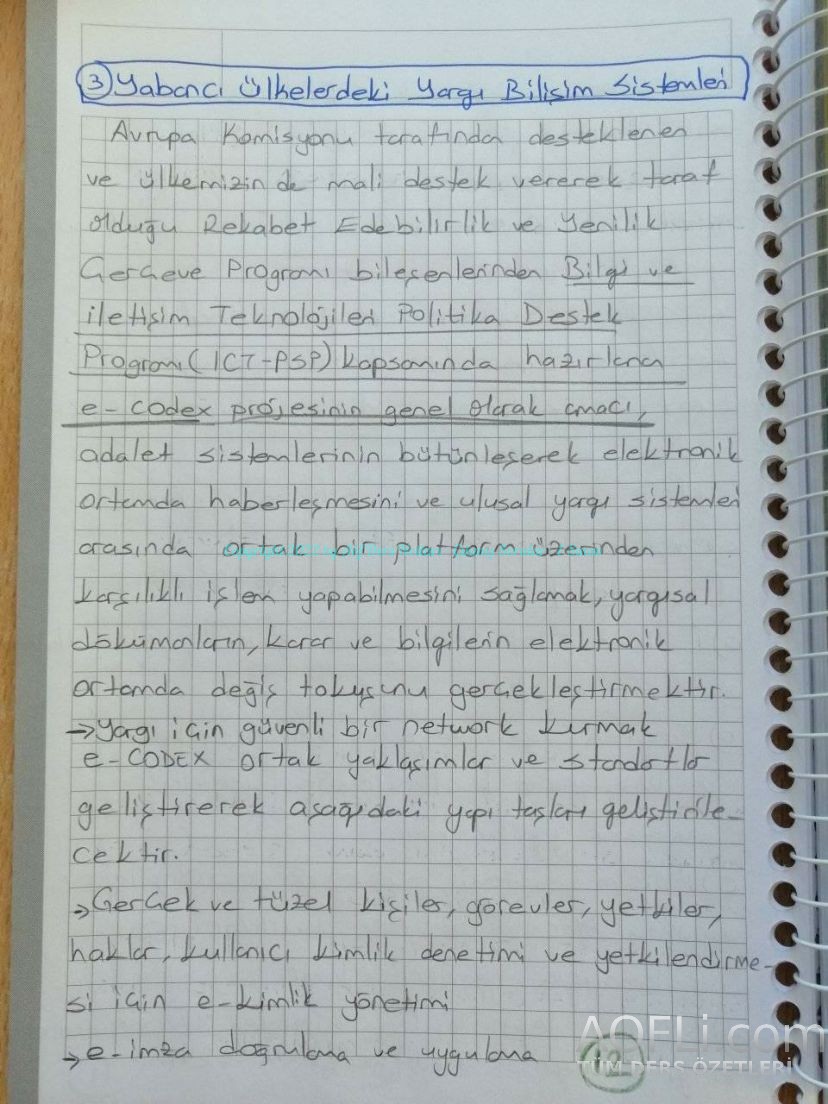 3 Yabancı Ülkelerdeki Yargı Bilişim Sistemleri
Avrupa Komisyonu tarafında desteklenen
ve ülkemizin de mali destek vererek taraf
olduğu Rekabet Edebilirlik ve Yenilik
Çerçeve Programı bileşenlerinden Bilgi ve
iletişim Teknolojileri Politika Destek
Programı (ICT-PSP) kapsamında hazırlanan
e-Codex projesinin genel olarak amacı,
adalet sistemlerinin bütünleşerek elektronik
ortamda haberleşmesini ve ulusal yargı sistemleri
arasında ortak bir platform üzerinden
karşılıklı işlem yapabilmesini sağlamak, yargısal
dökümanların, karar ve bilgilerin elektronik
ortamda değiş tokuşunu gerçekleştirmektir.
→ Yargı için güvenli bir network kurmak
e-CODEX ortak yaklaşımlar ve standartlar
geliştirerek aşağıdaki yapı taşları geliştirile-
cektir.
→ Gerçek ve tüzel kişiler, görevler, yetkiler,
haklar, kullanıcı kimlik denetimi ve yetkilendirme-
si için e-kimlik yönetimi
→ e-imza doğrulama ve uygulama
12
AOFLi.com
TÜM DERS ÖZETLERİ